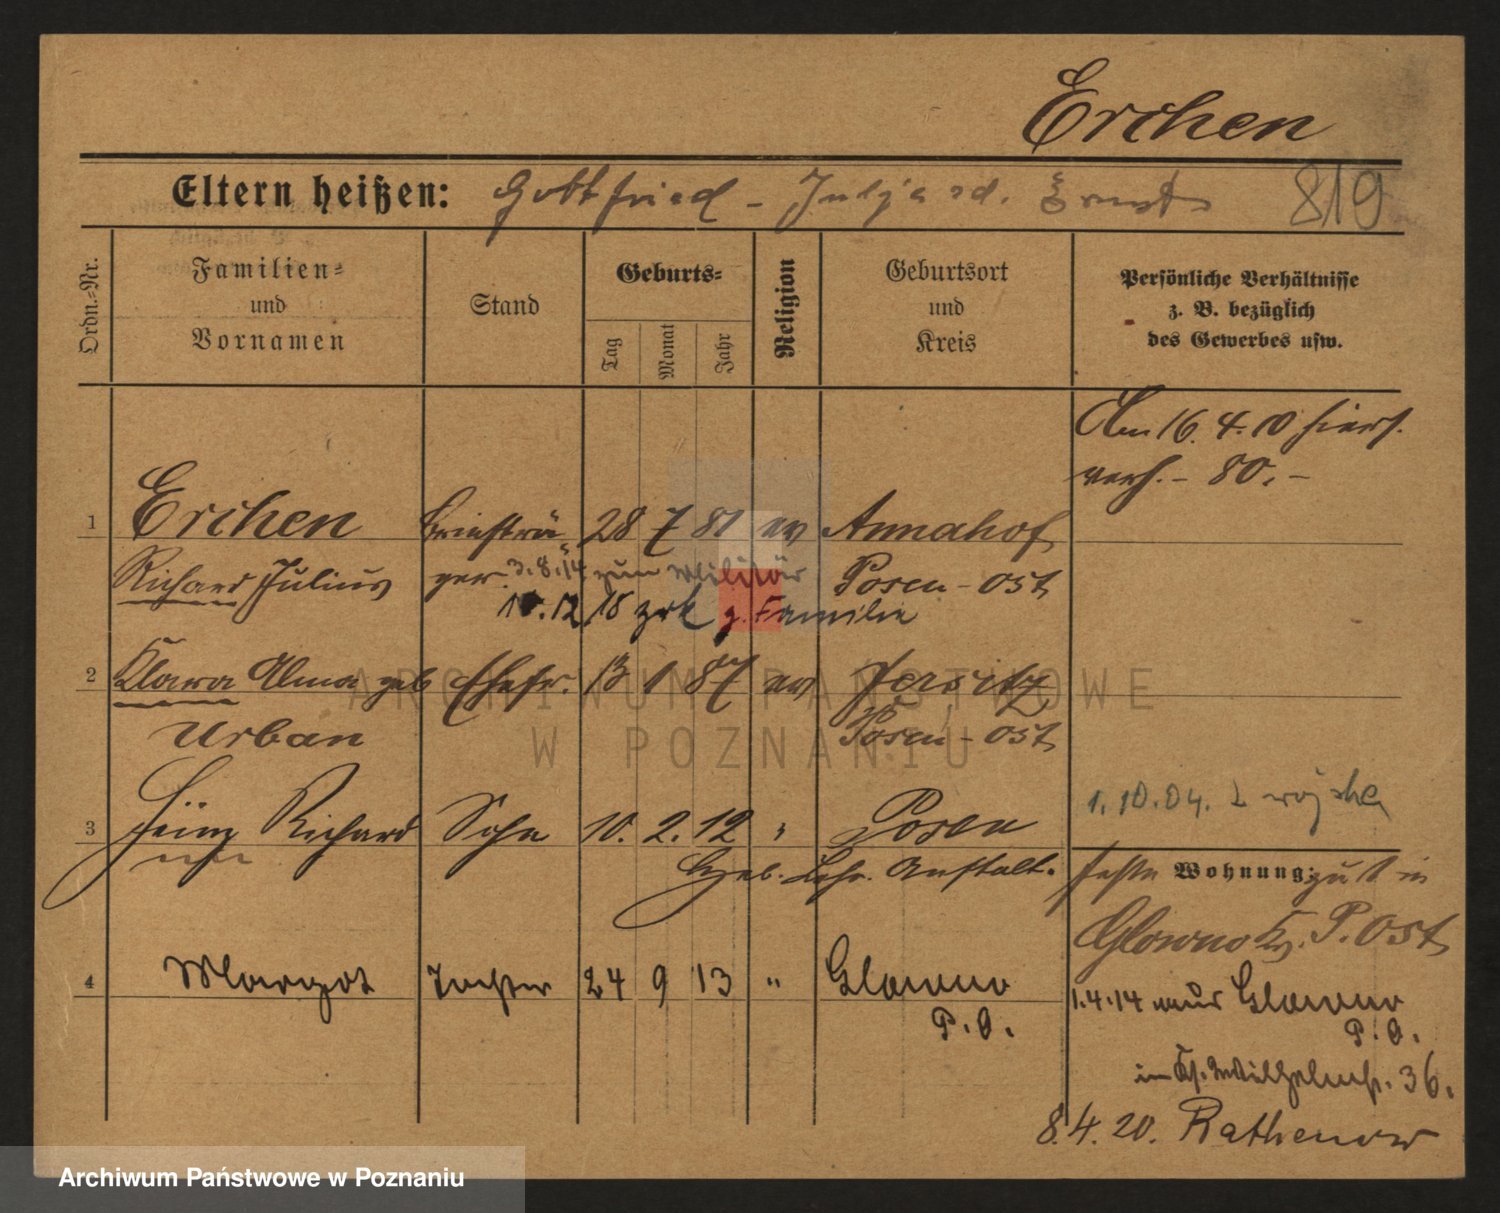 Erchen
Eltern heißen: Gottfried - Julja ed. Ernst 819
Ordn.-Nr.
Familien-
und
Vornamen
Stand
Geburts-
Tag
Monat
Jahr
Religion
Geburtsort
und
Kreis
Persönliche Verhältnisse
z. B. bezüglich
des Gewerbes usw.
Am 16. 4. 10 hiers.
verh. - 80. -
1 Erchen Briefträ 28 7 81 ev Annahof
Richard Julius ger. 3.8.14 zum Militär Posen - Ost
12 18 zrk z. Familie
2 Klara Alma geb Ehefr. 13 1 87 ev Jersitz
Urban Posen - Ost
1.10.04.
3 Heinz Richard Sohn 10. 2. 12 " Posen
Geb. Anstalt.
Wohnung:
Glowno P. Ost
4 Margot Tochter 24 9 13 " Glowno
P. O.
1.4.14 Glowno
P. O.
36.
8.4.20. Rathenow
ARCHIWUM PAŃSTWOWE
W POZNANIU
Archiwum Państwowe w Poznaniu